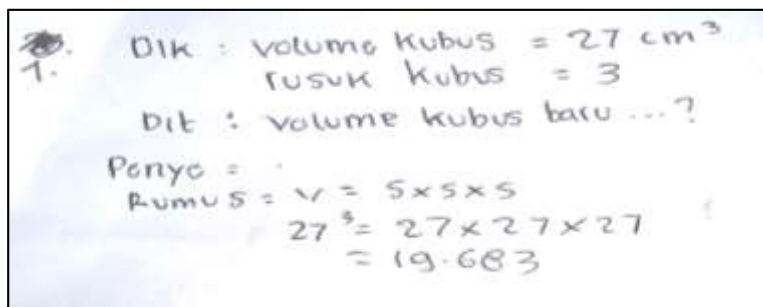 1. Dik : Volume Kubus = 27 cm³
rusuk kubus = 3
Dit : Volume kubus baru ...?
Penye =
Rumus = V = S x S x S
27³ = 27 x 27 x 27
= 19.683